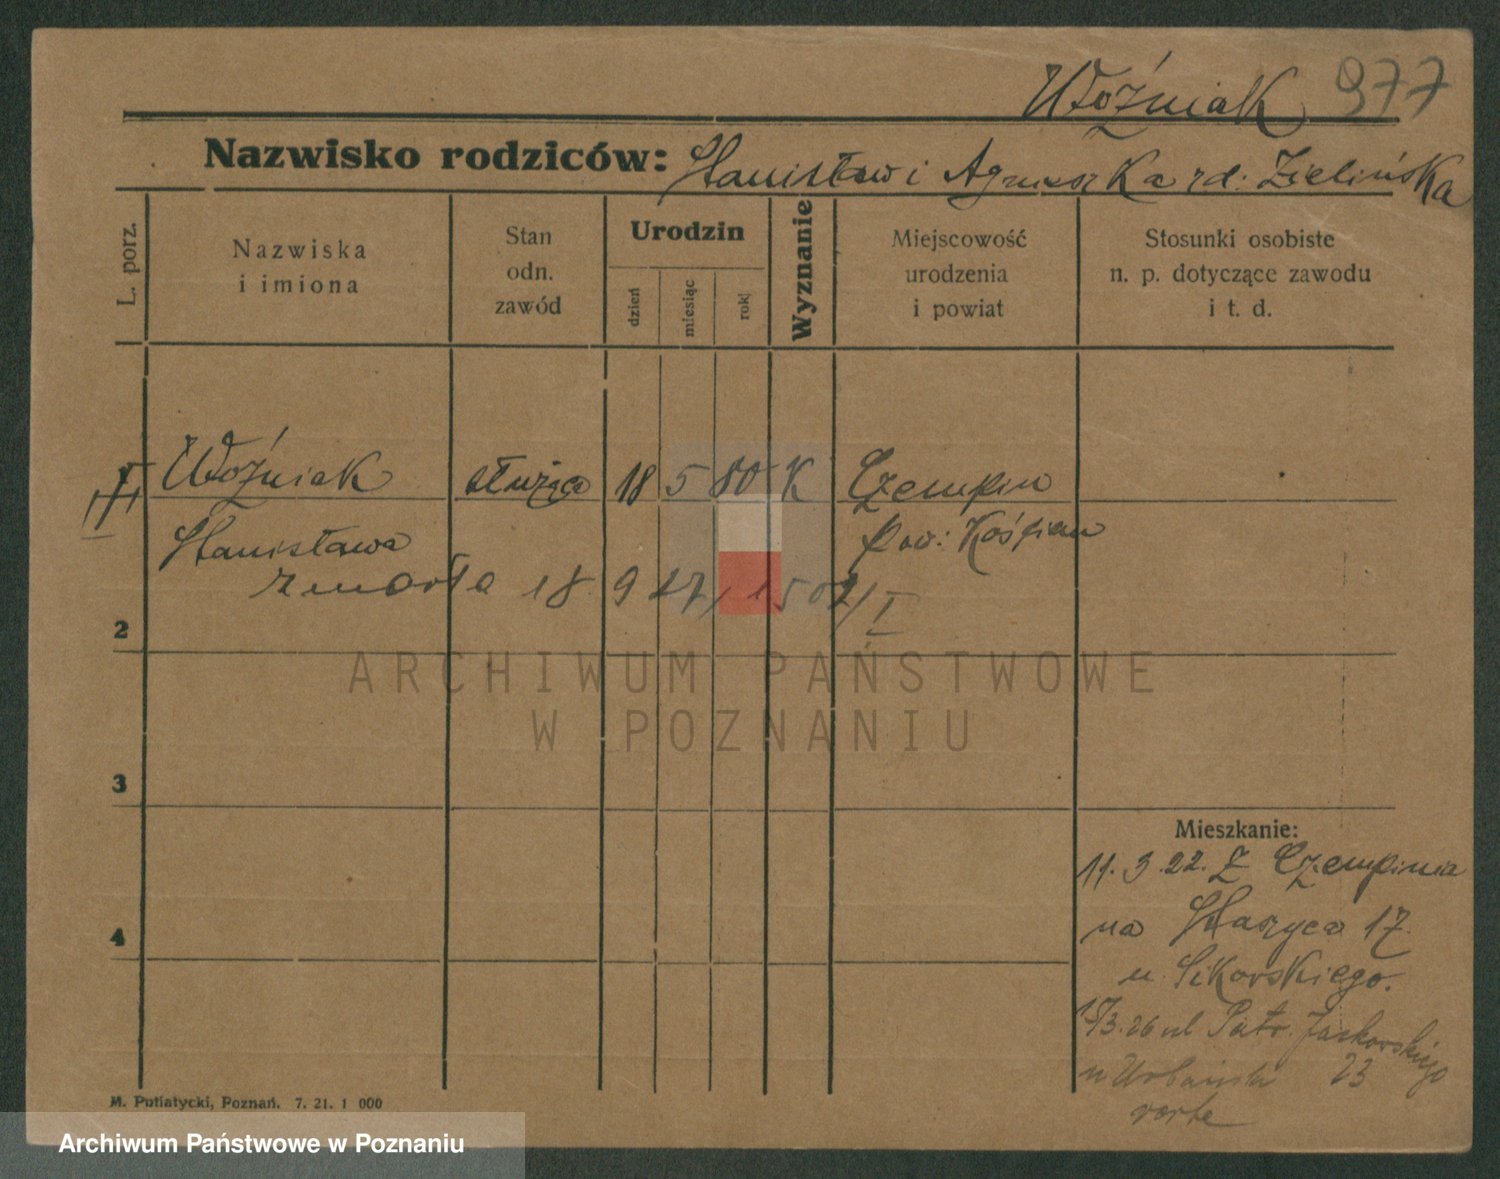 Woźniak 977
Nazwisko rodziców: Stanisław i Agnieszka rd: Zielińska
L. porz.
Nazwiska
i imiona
Stan
odn.
zawód
Urodzin
dzień
miesiąc
rok
Wyznanie
Miejscowość
urodzenia
i powiat
Stosunki osobiste
n. p. dotyczące zawodu
i t. d.
Woźniak służąca 18 5 80 K Czempin
Stanisława pow: Kościan
zmarła 18 9 27, 1502/I
2
3
4
Mieszkanie:
11.3.22. Z Czempinia
na Staszyca 17.
u Sikorskiego.
15/3.26 ul Patr. Jackowskiego
u 23
M. Putiatycki, Poznań. 7. 21. 1 000
ARCHIWUM PAŃSTWOWE
W POZNANIU
Archiwum Państwowe w Poznaniu